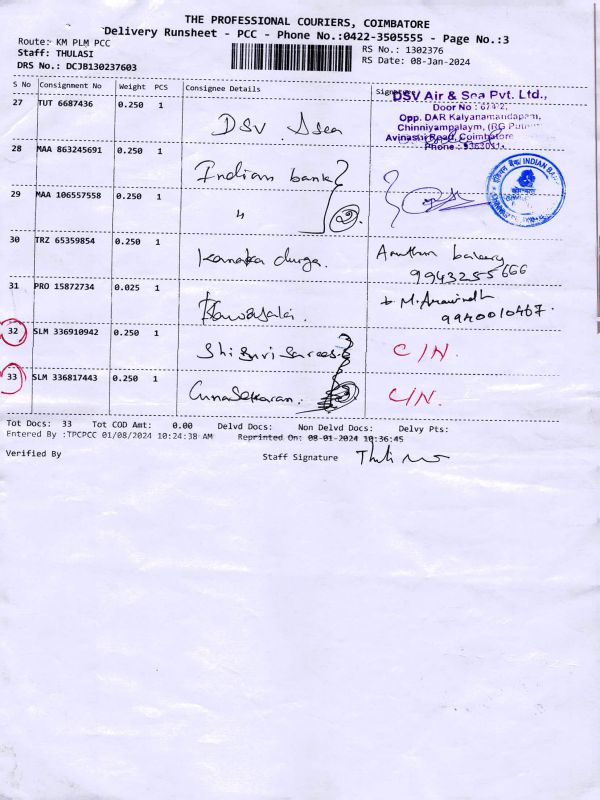 THE PROFESSIONAL COURIERS, COIMBATORE
Delivery Runsheet - PCC - Phone No.:0422-3505555 - Page No.:3
Route: KM PLM PCC
RS No.: 1302376
Staff: THULASI
RS Date: 08-Jan-2024
DRS No.: DCJB130237603
S No Consignment No Weight PCS Consignee Details
27 TUT 6687436 0.250 1 DSV
DSV Air & Sea Pvt. Ltd.,
Opp. DAR Kalyanamandapam,
Chinniyampalaym, (RG
Avinashi Road, Coimbatore
28 MAA 863245691 0.250 1 Indian bank
INDIAN
29 MAA 106557558 0.250 1 〃 2
30 TRZ 65359854 0.250 1 Kanaka durga. bakery
9943255666
31 PRO 15872734 0.025 1
9940010467.
32 SLM 336910942 0.250 1 C/N.
33 SLM 336817443 0.250 1 Gunasekaran. 2 C/N.
Tot Docs: 33 Tot COD Amt: 0.00 Delvd Docs: Non Delvd Docs: Delvy Pts:
Entered By :TPCPCC 01/08/2024 10:24:38 AM Reprinted On: 08-01-2024 10:36:45
Verified By Staff Signature